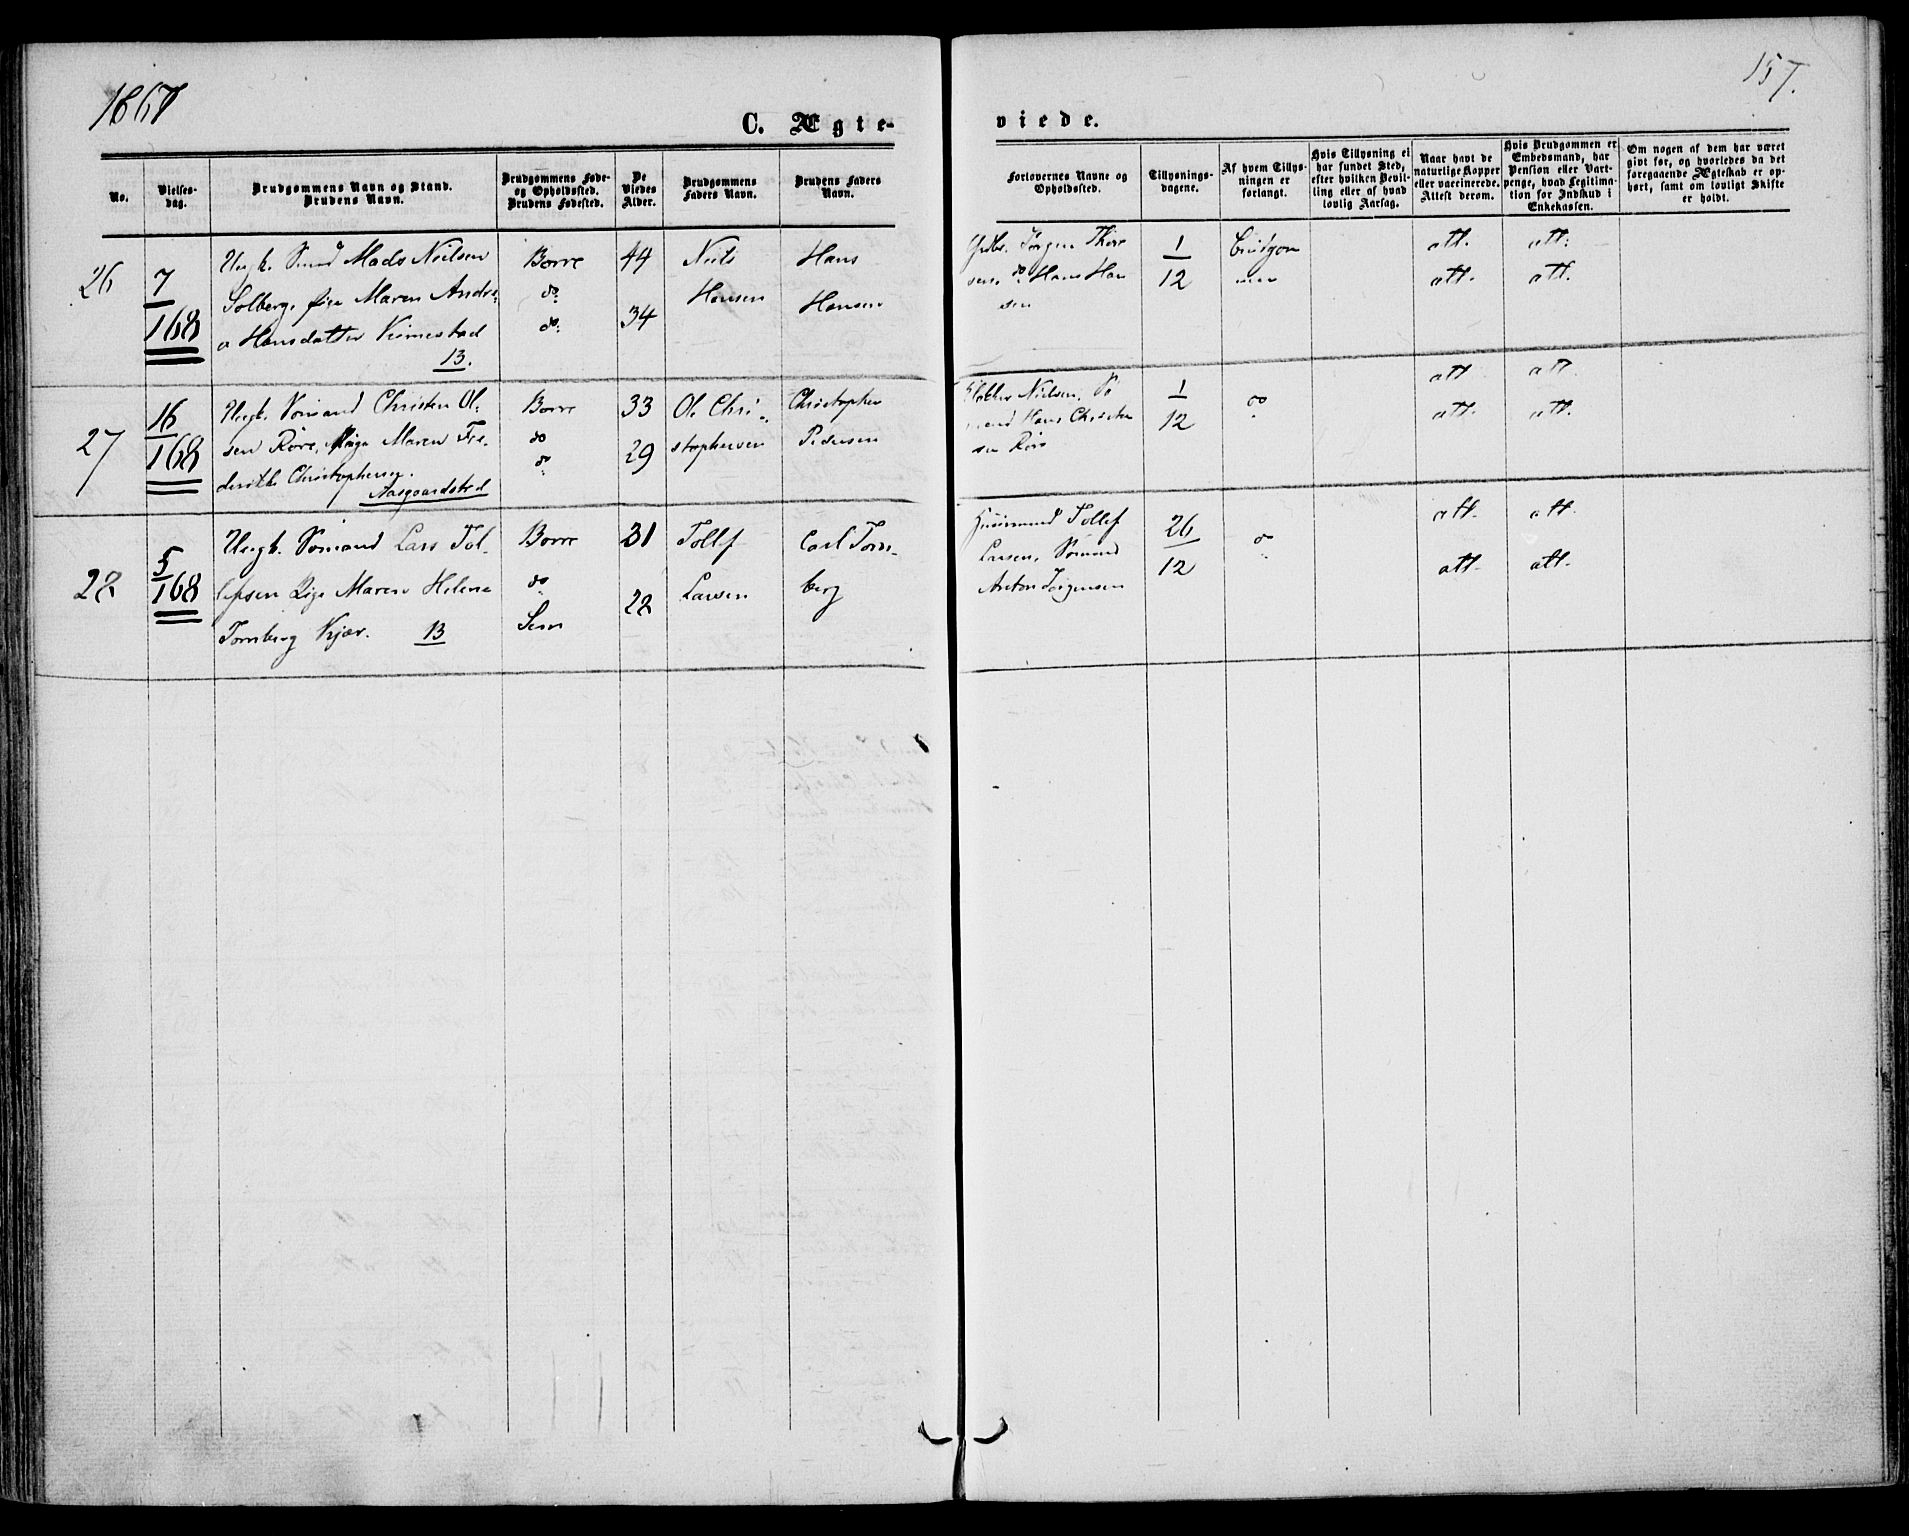 1867
157.
C. Ægte-
viede.
No.
Vielses-
dag.
Brudgommens Navn og Stand.
Brudens Navn.
Brudgommens Føde-
og Opholdssted.
Brudens Fødested.
De
Viedes
Alder.
Brudgommens
Faders Navn.
Brudens Faders
Navn.
Forlovernes Navne og
Opholdssted.
Tillysnings-
dagene.
Af hvem Tillys-
ningen er
forlangt.
Hvis Tillysning ei
har fundet Sted,
efter hvilken Bevil-
ling eller af hvad
lovlig Aarsag.
Naar havt de
naturlige Kopper
eller vaccinerede.
Attest derom.
Hvis Brudgommen er
Embedsmand, har
Pension eller Vart-
penge, hvad Legitima-
tion for Indskud i
Enkekassen.
Om nogen af dem har været
givt før, og hvorledes da det
foregaaende Ægteskab er op-
hørt, samt om lovligt Skifte
er holdt.
26
7
168
Ungk. Smed Mads Nielsen
Solberg, Pige Maren Andre-
a Hansdatter
B.
Borre
do
do
44
34
Niels
Hansen
Hans
Hansen
Jørgen Thor
sen, do Hans Han
sen
1
12
Brudgom
men
att.
att.
att.
att.
27
16
168
Ungk. Sömand Christen Ol-
sen Röre, Pige Maren Fre-
derikke Christophersen.
Aasgaardstrand
Borre
do
do
33
29
Ole Chri-
stophersen
Christopher
Pedersen
Nielsen, Sö
mand Hans Christen
sen Röre
1
12
do
att
att.
att.
att.
28
5
168
Ungk. Sömand Lars Tol-
lefsen Pige Maren Helene
Tornberg Kjær. B
Borre
do
Sem
31
22
Tollef
Larsen
Carl Torn-
berg
Huusmand Tollef
Larsen, Sömand
Anton Jörgensen
26
12
do
att.
att.
att.
att.